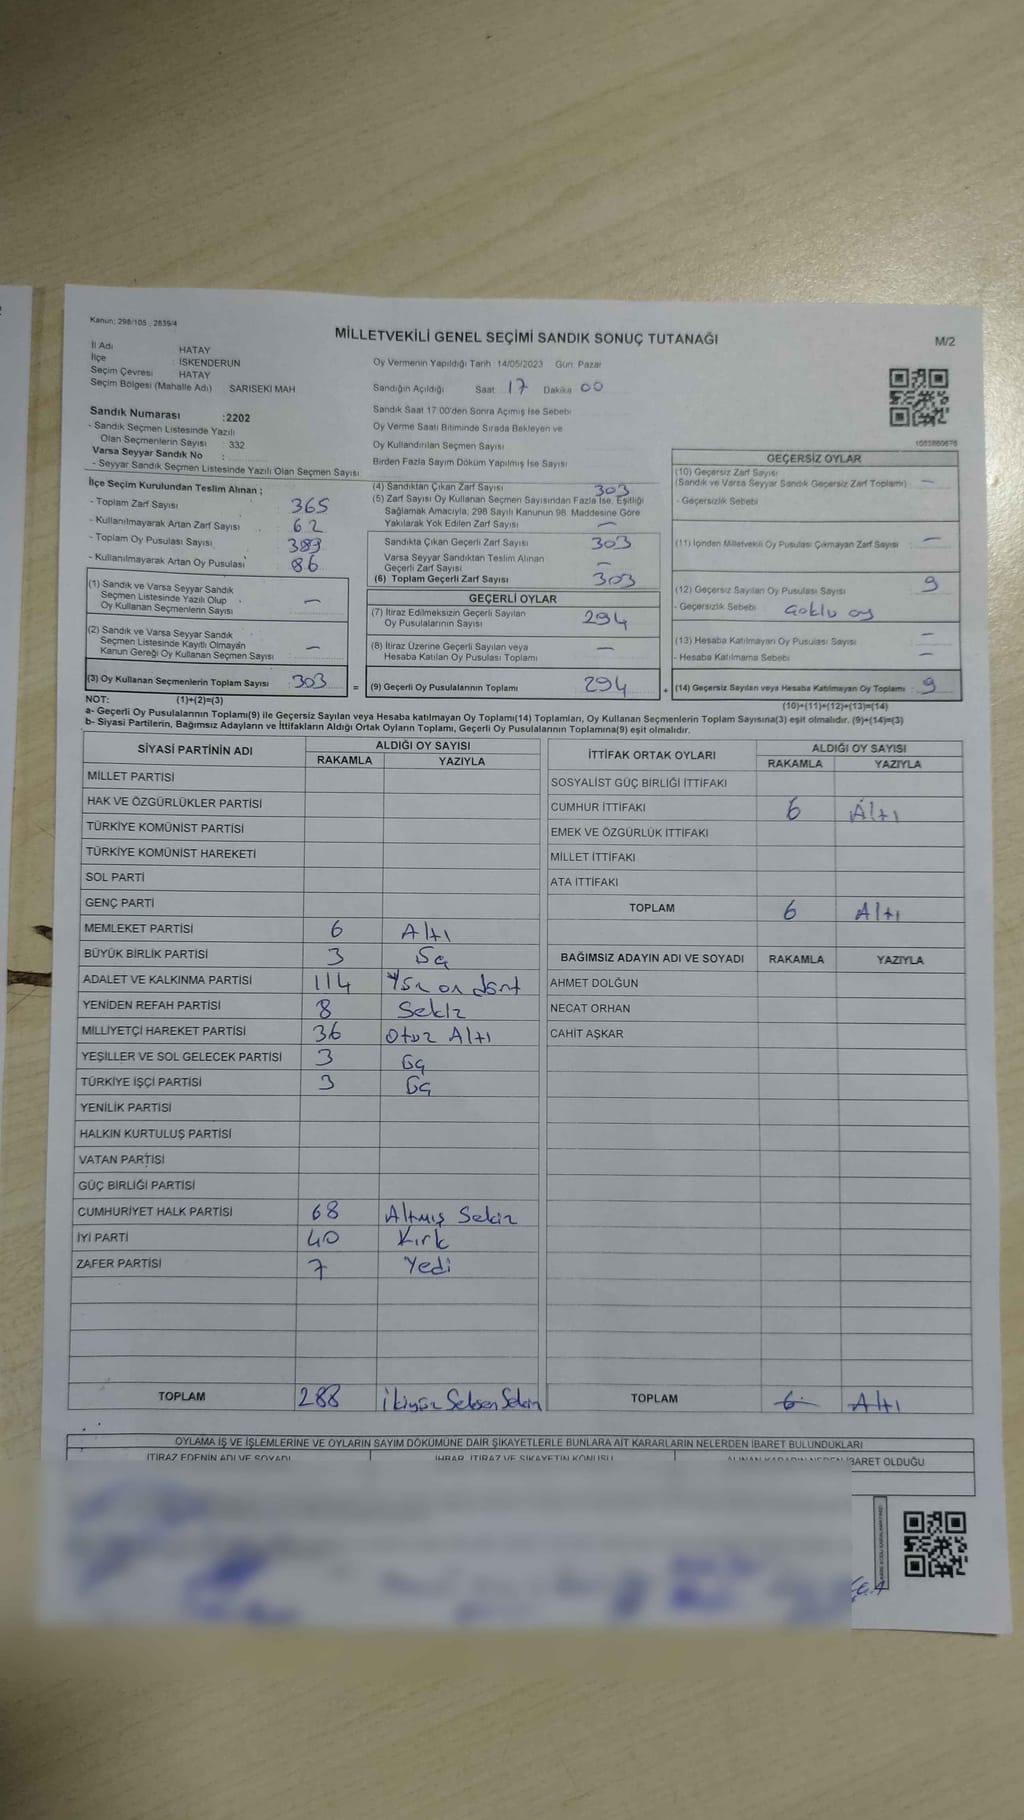 Kanun: 298/105 , 2839/4
MİLLETVEKİLİ GENEL SEÇİMİ SANDIK SONUÇ TUTANAĞI
M/2
İl Adı HATAY
İlçe : İSKENDERUN
Seçim Çevresi HATAY
Seçim Bölgesi (Mahalle Adı) SARISEKİ MAH
Sandık Numarası :2202
- Sandık Seçmen Listesinde Yazılı
Olan Seçmenlerin Sayısı : 332
Varsa Seyyar Sandık No :
- Seyyar Sandık Seçmen Listesinde Yazılı Olan Seçmen Sayısı
Oy Vermenin Yapıldığı Tarih : 14/05/2023 Gün: Pazar
Sandığın Açıldığı Saat 17 Dakika 00
Sandık Saat 17 00'den Sonra Açımış İse Sebebi
Oy Verme Saati Bitiminde Sırada Bekleyen ve
Oy Kullandırılan Seçmen Sayısı
Birden Fazla Sayım Döküm Yapılmış İse Sayısı
İlçe Seçim Kurulundan Teslim Alınan ;
- Toplam Zarf Sayısı 365
- Kullanılmayarak Artan Zarf Sayısı 62
- Toplam Oy Pusulası Sayısı 389
- Kullanılmayarak Artan Oy Pusulası 86
(1) Sandık ve Varsa Seyyar Sandık
Seçmen Listesinde Yazılı Olup
Oy Kullanan Seçmenlerin Sayısı —
(2) Sandık ve Varsa Seyyar Sandık
Seçmen Listesinde Kayıtlı Olmayan
Kanun Gereği Oy Kullanan Seçmen Sayısı —
(3) Oy Kullanan Seçmenlerin Toplam Sayısı 303
(4) Sandıktan Çıkan Zarf Sayısı 303
(5) Zarf Sayısı Oy Kullanan Seçmen Sayısından Fazla İse, Eşitliği
Sağlamak Amacıyla, 298 Sayılı Kanunun 98. Maddesine Göre
Yakılarak Yok Edilen Zarf Sayısı —
Sandıkta Çıkan Geçerli Zarf Sayısı 303
Varsa Seyyar Sandıktan Teslim Alınan
Geçerli Zarf Sayısı —
(6) Toplam Geçerli Zarf Sayısı 303
GEÇERLİ OYLAR
(7) İtiraz Edilmeksizin Geçerli Sayılan
Oy Pusulalarının Sayısı 294
(8) İtiraz Üzerine Geçerli Sayılan veya
Hesaba Katılan Oy Pusulası Toplamı —
= (9) Geçerli Oy Pusulalarının Toplamı 294
1083860676
GEÇERSİZ OYLAR
(10) Geçersiz Zarf Sayısı
(Sandık ve Varsa Seyyar Sandık Geçersiz Zarf Toplamı) —
- Geçersizlik Sebebi
(11) İçinden Milletvekili Oy Pusulası Çıkmayan Zarf Sayısı —
(12) Geçersiz Sayılan Oy Pusulası Sayısı 9
- Geçersizlik Sebebi Çoklu oy
(13) Hesaba Katılmayan Oy Pusulası Sayısı —
- Hesaba Katılmama Sebebi —
+ (14) Geçersiz Sayılan veya Hesaba Katılmayan Oy Toplamı : 9
NOT: (1)+(2)=(3)
(10)+(11)+(12)+(13)=(14)
a- Geçerli Oy Pusulalarının Toplamı(9) ile Geçersiz Sayılan veya Hesaba katılmayan Oy Toplamı(14) Toplamları, Oy Kullanan Seçmenlerin Toplam Sayısına(3) eşit olmalıdır. (9)+(14)=(3)
b- Siyasi Partilerin, Bağımsız Adayların ve İttifakların Aldığı Ortak Oyların Toplamı, Geçerli Oy Pusulalarının Toplamına(9) eşit olmalıdır.
SİYASİ PARTİNİN ADI ALDIĞI OY SAYISI
RAKAMLA YAZIYLA
MİLLET PARTİSİ
HAK VE ÖZGÜRLÜKLER PARTİSİ
TÜRKİYE KOMÜNİST PARTİSİ
TÜRKİYE KOMÜNİST HAREKETİ
SOL PARTİ
GENÇ PARTİ
MEMLEKET PARTİSİ 6 Altı
BÜYÜK BİRLİK PARTİSİ 3
ADALET VE KALKINMA PARTİSİ 114 Yüz on dört
YENİDEN REFAH PARTİSİ 8 Sekiz
MİLLİYETÇİ HAREKET PARTİSİ 36 Otuz Altı
YEŞİLLER VE SOL GELECEK PARTİSİ 3 Üç
TÜRKİYE İŞÇİ PARTİSİ 3 Üç
YENİLİK PARTİSİ
HALKIN KURTULUŞ PARTİSİ
VATAN PARTİSİ
GÜÇ BİRLİĞİ PARTİSİ
CUMHURİYET HALK PARTİSİ 68 Altmış Sekiz
İYİ PARTİ 40 Kırk
ZAFER PARTİSİ 7 Yedi
TOPLAM 288 İkiyüz Seksen Sekiz
İTTİFAK ORTAK OYLARI ALDIĞI OY SAYISI
RAKAMLA YAZIYLA
SOSYALİST GÜÇ BİRLİĞİ İTTİFAKI
CUMHUR İTTİFAKI 6 Altı
EMEK VE ÖZGÜRLÜK İTTİFAKI
MİLLET İTTİFAKI
ATA İTTİFAKI
TOPLAM 6 Altı
BAĞIMSIZ ADAYIN ADI VE SOYADI RAKAMLA YAZIYLA
AHMET DOLĞUN
NECAT ORHAN
CAHİT AŞKAR
TOPLAM 6 Altı
OYLAMA İŞ VE İŞLEMLERİNE VE OYLARIN SAYIM DÖKÜMÜNE DAİR ŞİKAYETLERLE BUNLARA AİT KARARLARIN NELERDEN İBARET BULUNDUKLARI
İTİRAZ EDENİN ADI VE SOYADI İHBAR, İTİRAZ VE ŞİKAYETİN KONUSU ALINAN KARARIN NEDEN İBARET OLDUĞU